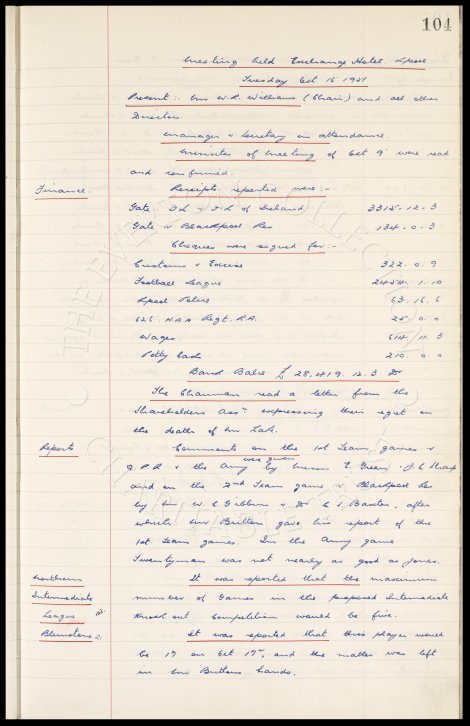 104
Meeting held Exchange Hotel, Lpool
Tuesday Oct 16 1951
Present:- Mr W.R. Williams (Chair) and all other
Directors.
Manager & Secretary in attendance.
Minutes of Meeting of Oct 9 were read
and confirmed.
Finance. Receipts reported were:-
Gate: F.L. v F.L. of Ireland 3315. 12. 3
Gate v Blackpool Res 134. 0. 3
Cheques were signed for:-
Customs & Excise 322. 0. 9
Football League 2454. 1. 10
Lpool Police 63. 16. 6
626. H.A.A Regt. R.A. 25. 0. 0
Wages 614. 11. 3
Petty Cash 210. 0. 0
Bank Balce £ 28,419. 12. 3 Dr
The Chairman read a letter from the
Shareholders Assn expressing their regret in
the death of Mr Lake.
Reports Comments on the 1st Team games v
were given
Q.P.R & the Army by Messrs E. Green & J C Sharp
and on the 2nd Team game v Blackpool Res
by Mr W C Gibbins & Dr C S Baxter, after
which Mr Britton gave his report of the
1st Team games. In the Army game
Twentyman was not nearly as good as Jones.
Northern It was reported that the maximum
Intermediate number of Games in the proposed Intermediate
League Knock out Competition would be five.
Blunstone It was reported that this player would
be 17 on Oct 17, and the matter was left
in Mr Brittons hands.
THE EVERTON COLLECTION
CHARITABLE TRUST